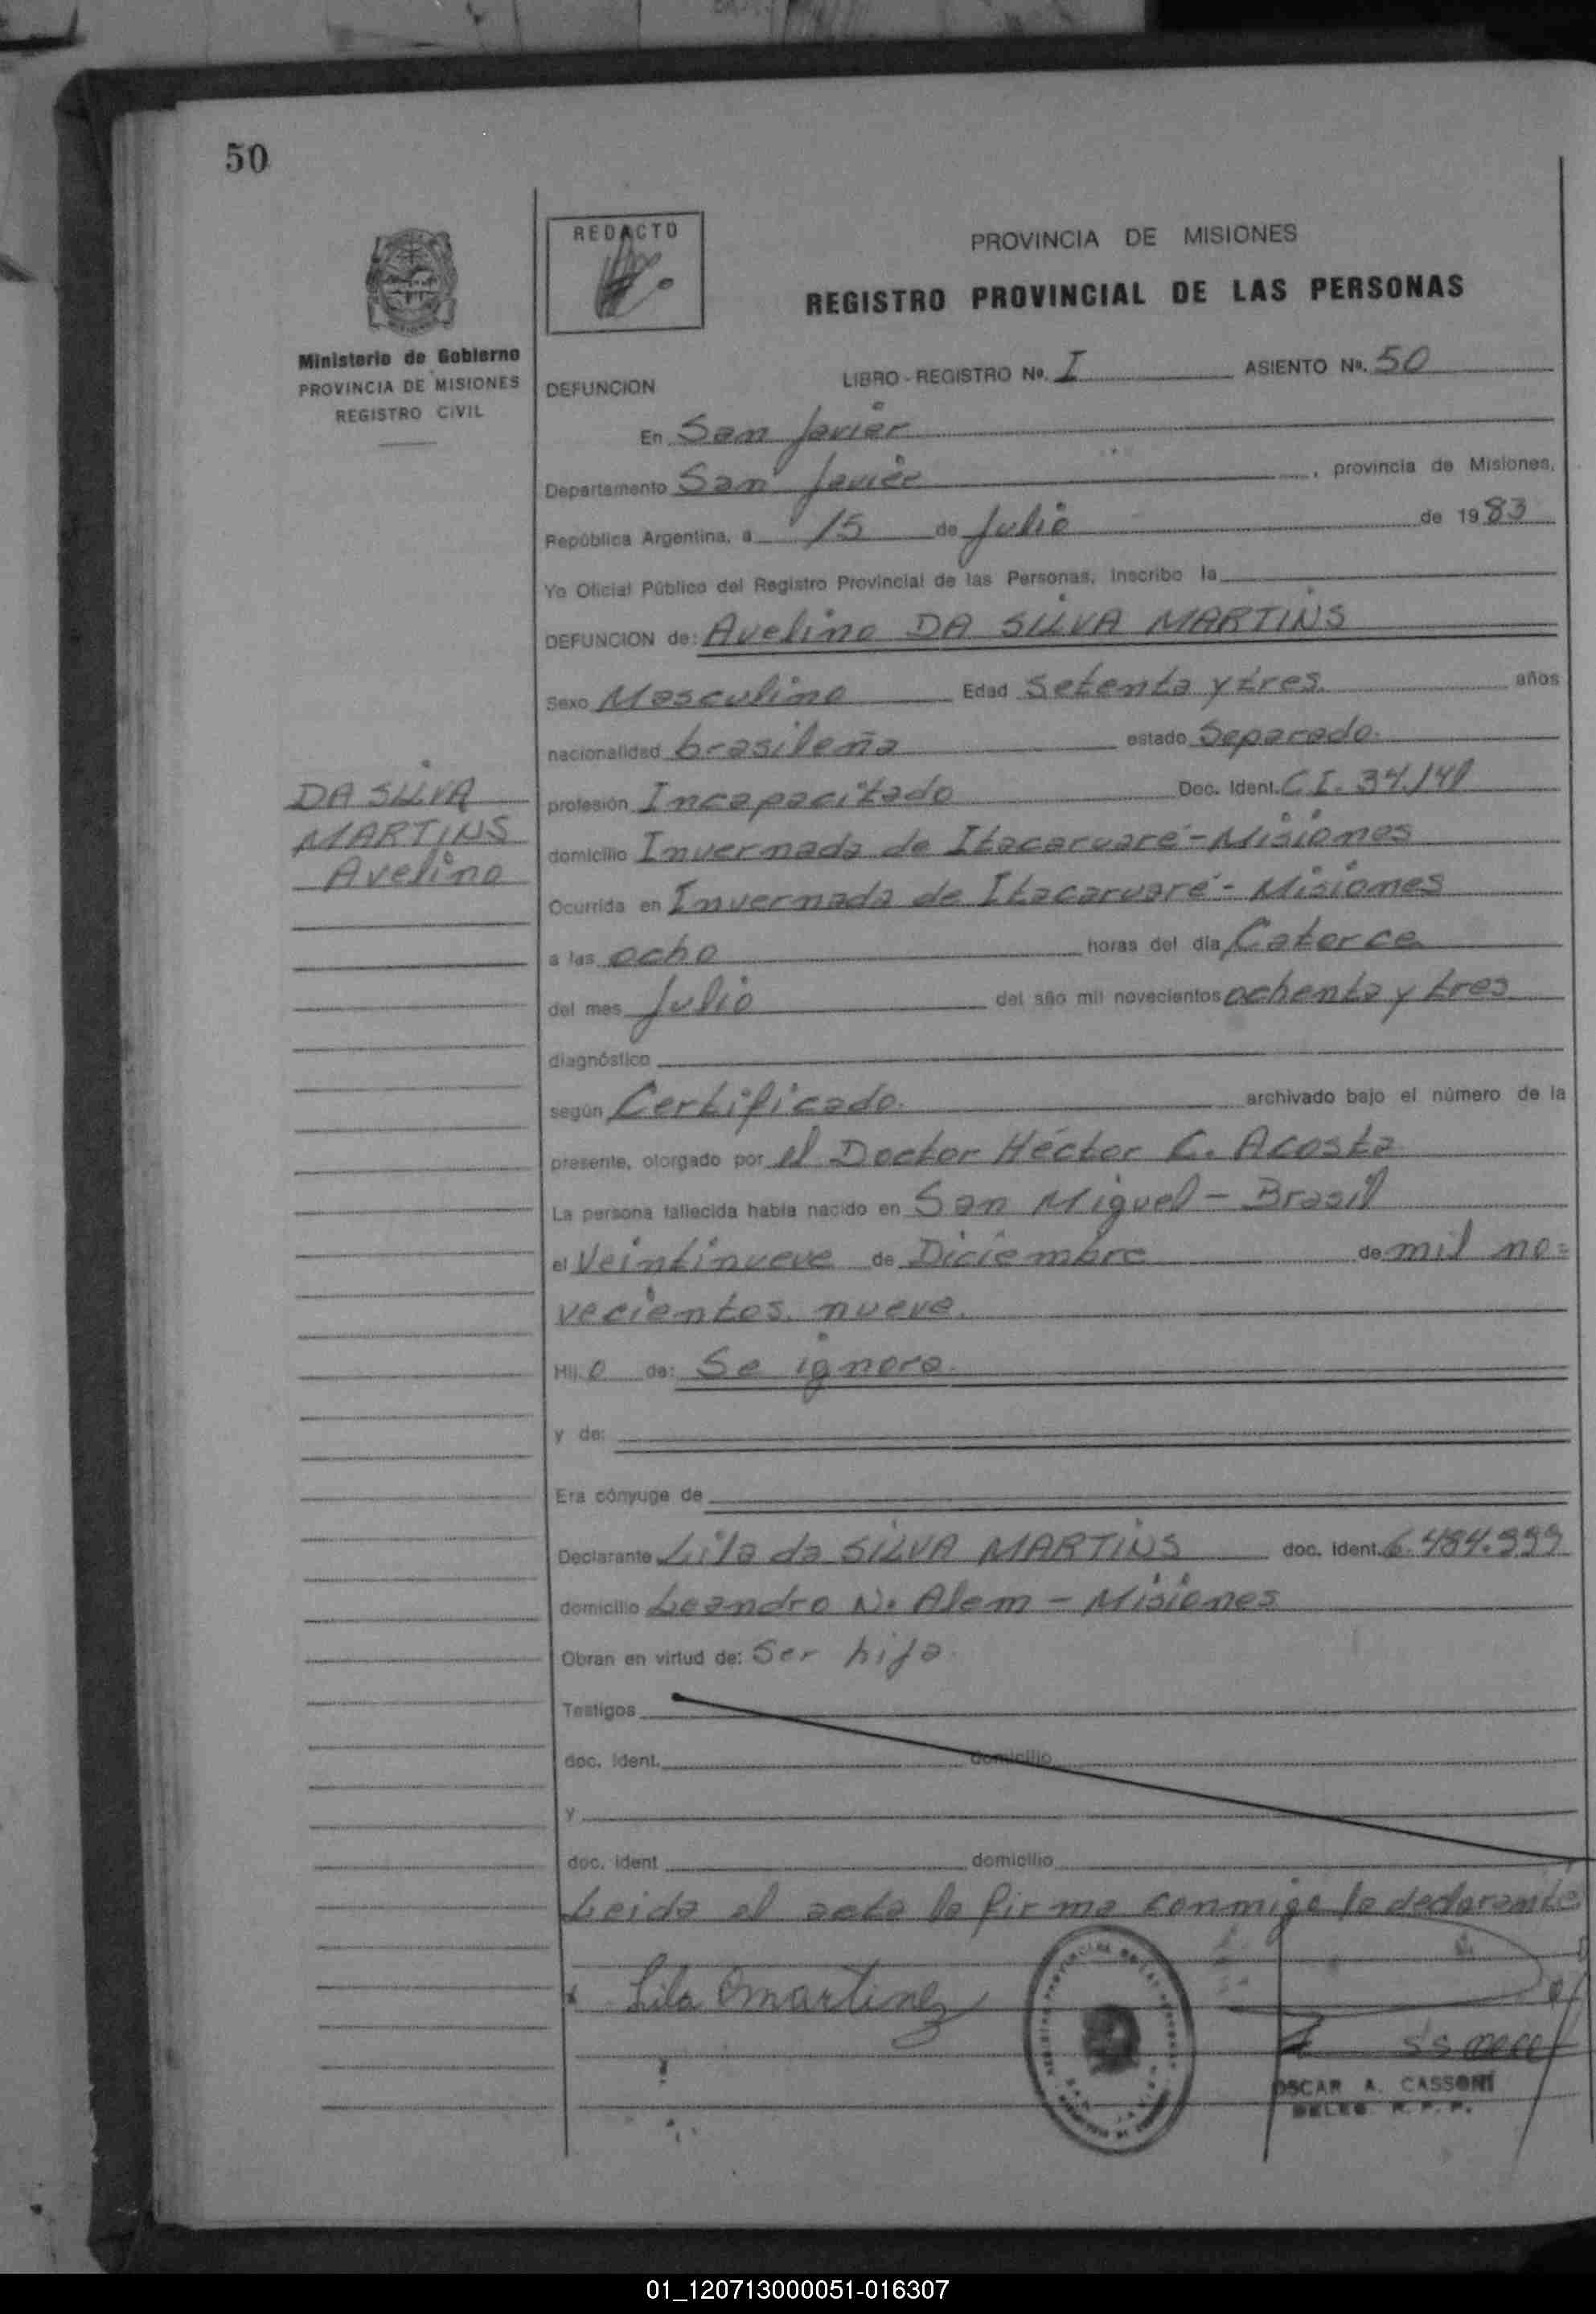 50
REDACTO
PROVINCIA DE MISIONES
REGISTRO PROVINCIAL DE LAS PERSONAS
Ministerio de Gobierno
PROVINCIA DE MISIONES
REGISTRO CIVIL
DEFUNCION LIBRO-REGISTRO Nº. I ASIENTO Nº. 50
En San Javier
Departamento San Javier, provincia de Misiones,
República Argentina, a 15 de Julio de 1983
Yo Oficial Público del Registro Provincial de las Personas, inscribo la
DEFUNCION de: Avelino DA SILVA MARTINS
Sexo Masculino Edad Setenta y tres. años
nacionalidad brasileña estado Separado.
DA SILVA
MARTINS
Avelino
profesión Incapacitado Doc. Ident. C.I. 34.141
domicilio Invernada de Itacaruaré - Misiones
Ocurrida en Invernada de Itacaruaré - Misiones
a las ocho horas del día Catorce
del mes Julio del año mil novecientos ochenta y tres
diagnóstico
según Certificado. archivado bajo el número de la
presente, otorgado por el Doctor Héctor C. Acosta
La persona fallecida había nacido en San Miguel - Brasil
el Veintinueve de Diciembre de mil no=
vecientos nueve.
Hij o de: Se ignora.
y de:
Era cónyuge de
Declarante Lila da SILVA MARTINS doc. ident. 6.484.999
domicilio Leandro N. Alem - Misiones
Obran en virtud de: Ser hija.
Testigos
doc. ident. domicilio
y
doc. ident domicilio
Leida el acta la firma conmigo la declarante
Lila Martinez
OSCAR A. CASSONI
DELEG. R. P. P.
01_120713000051-016307